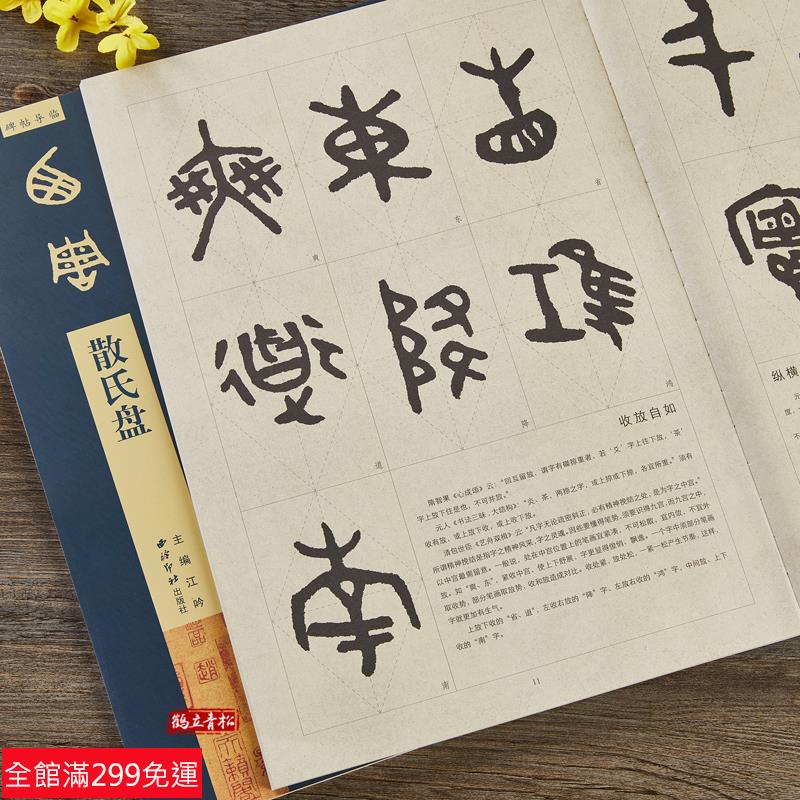 碑帖导临
散氏盘
主编 江吟
西泠印社出版社
爽
东
省
道
降
鸿
南
收放自如
隋智果《心成颂》云：“回互留放，谓字有磔掠重者，若‘爻’字上住下放，‘茶’
字上放下住是也，不可并放。”
元人《书法三昧·大结构》：“炎、茶，两掠之字，或上掠或下掠，各宜所里。”须有
收有放，或上放下收，或上收下放。
清包世臣《艺舟双楫》云“凡字无论疏密斜正，必有精神挽结之处，是为字之中宫。”
所谓精神挽结是指字之精神风采，字之灵魂。因些要懂得笔势，须要识得九宫，而九宫之中，
以中宫最需留意。一般说，处在中宫位置上的笔画宜紧凑，不可松散，宜内敛，不宜外
放。如“爽、东”，紧收中宫，使上下舒展，字更显得俊俏、飘逸。一个字中须部分笔画
取收势，部分笔画取放势，收和放造成对比。收处紧，放处松，一紧一松产生节奏，这样，
字就更加有生气。
上放下收的“省、道”，左收右放的“降”字，左放右收的“鸿”字，中间放、上下
收的“南”字。
11
纵横
鹤立青松
全館滿299免運